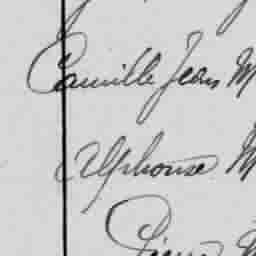 Camille Jean M
Alphonse M
Pierre M